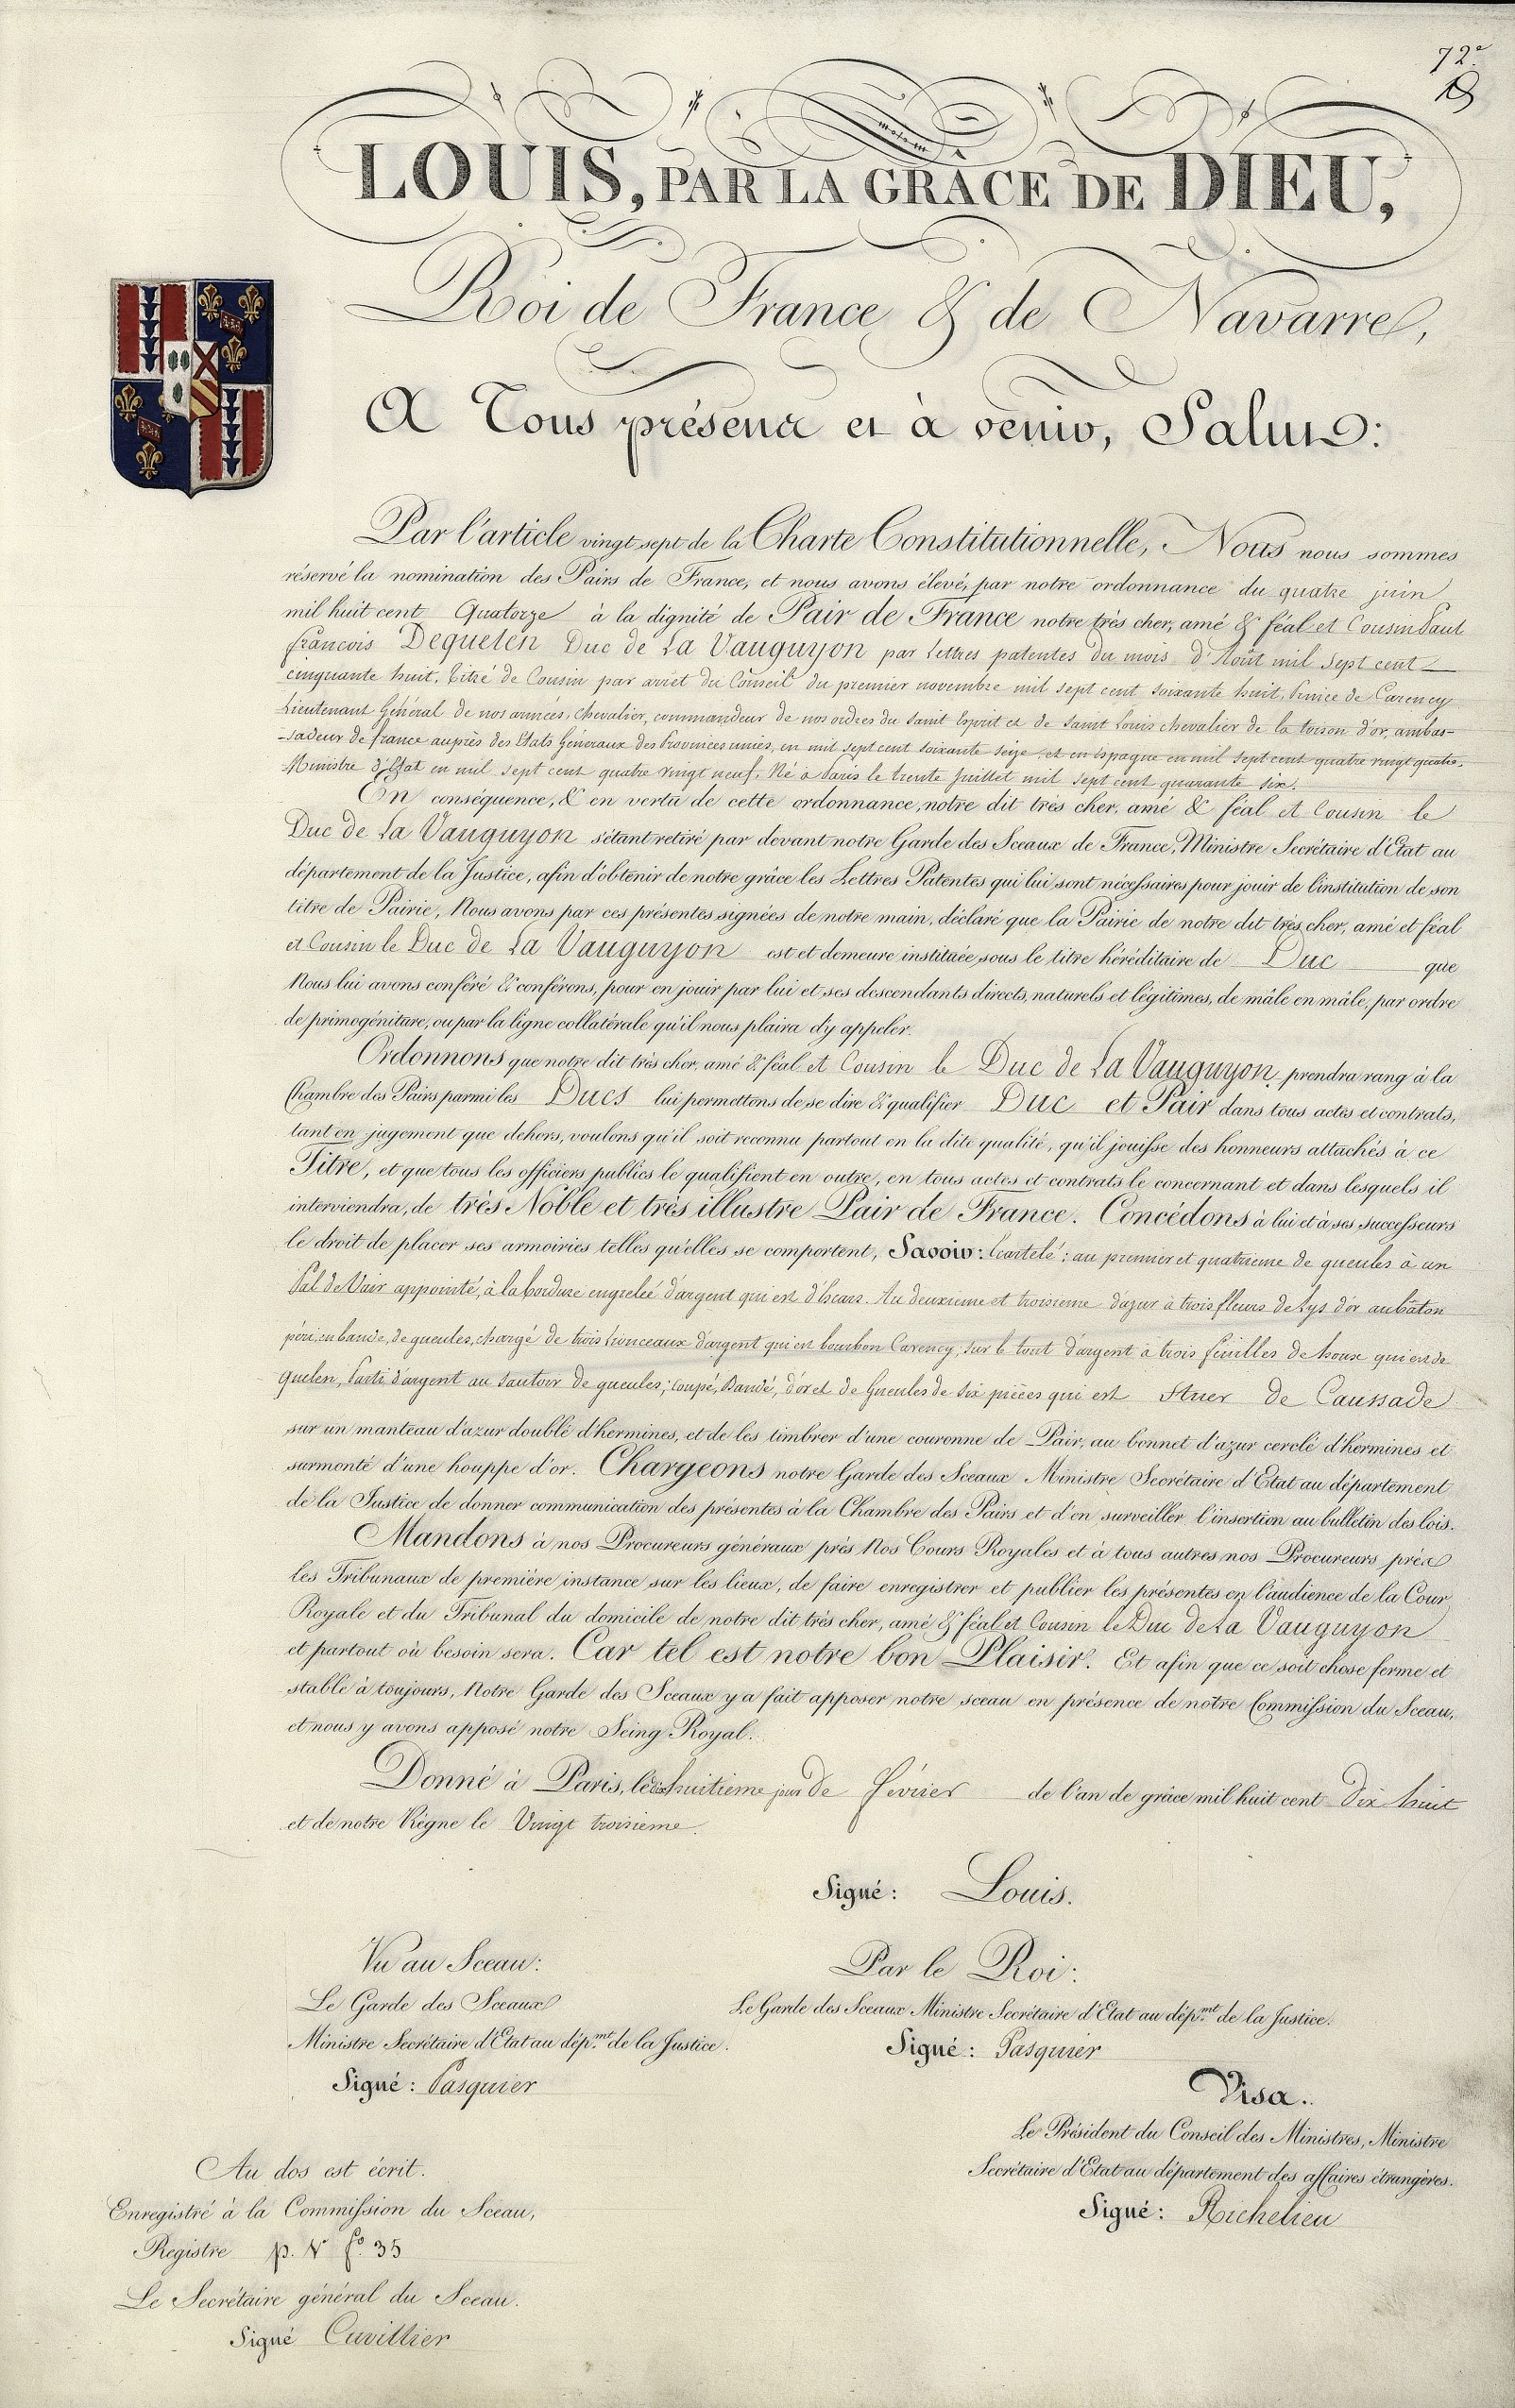 72e
LOUIS, PAR LA GRÂCE DE DIEU,
Roi de France & de Navarre,
A Tous présens et à venir, Salut:
Par l'article vingt sept de la Charte Constitutionnelle, Nous nous sommes
réservé la nomination des Pairs de France, et nous avons élevé, par notre ordonnance du quatre juin
mil huit cent Quatorze à la dignité de Pair de France notre très cher, amé & féal et Cousin Paul
françois Dequelen Duc de La Vauguyon par Lettres patentes du mois d'Août mil sept cent
cinquante huit, titré de Cousin par arrêt du Conseil du premier novembre mil sept cent soixante huit, Prince de Carency
Lieutenant Général de nos armées, chevalier, commandeur de nos ordres du saint Esprit et de saint Louis chevalier de la toison d'or, ambas-
-sadeur de france auprès des Etats Généraux des Provinces unies, en mil sept cent soixante seize, et en Espagne en mil sept cent quatre vingt quatre.
Ministre d'Etat en mil sept cent quatre vingt neuf. Né à Paris le trente Juillet mil sept cent quarante six.
En conséquence, & en vertu de cette ordonnance, notre dit très cher, amé & féal et Cousin le
Duc de La Vauguyon s'étant retiré par devant notre Garde des Sceaux de France, Ministre Secrétaire d'Etat au
département de la Justice, afin d'obtenir de notre grâce les Lettres Patentes qui lui sont nécessaires pour jouir de l'institution de son
titre de Pairie, Nous avons par ces présentes signées de notre main, déclaré que la Pairie de notre dit très cher, amé et féal
et Cousin le Duc de La Vauguyon est et demeure instituée sous le titre héréditaire de Duc que
Nous lui avons conféré & conférons, pour en jouir par lui et ses descendants directs, naturels et légitimes, de mâle en mâle, par ordre
de primogéniture, ou par la ligne collatérale qu'il nous plaira d'y appeler.
Ordonnons que notre dit très cher, amé & féal et Cousin le Duc de La Vauguyon prendra rang à la
Chambre des Pairs parmi les Ducs lui permettons de se dire & qualifier Duc et Pair dans tous actes et contrats,
tant en jugement que dehors, voulons qu'il soit reconnu partout en la dite qualité, qu'il jouisse des honneurs attachés à ce
Titre, et que tous les officiers publics le qualifient en outre, en tous actes et contrats le concernant et dans lesquels il
interviendra, de très Noble et très illustre Pair de France. Concédons à lui et à ses successeurs
le droit de placer ses armoiries telles qu'elles se comportent, Savoir: Ecartelé: au premier et quatrieme de gueules à un
Pal de Vair appointé, à la bordure engrelée d'argent qui est d'Escars. Au deuxieme et troisieme d'azur à trois fleurs de Lys d'or au bâton
péri en bande, de gueules, chargé de trois Lionceaux d'argent qui est bourbon Carency, sur le tout d'argent à trois feuilles de houx qui est de
Quelen, Parti d'argent au sautoir de gueules; coupé, Bandé, d'or et de Gueules de six pièces qui est Stuer de Caussade
sur un manteau d'azur doublé d'hermines, et de les timbrer d'une couronne de Pair, au bonnet d'azur cerclé d'hermines et
surmonté d'une houppe d'or. Chargeons notre Garde des Sceaux Ministre Secrétaire d'Etat au département
de la Justice de donner communication des présentes à la Chambre des Pairs et d'en surveiller l'insertion au bulletin des lois.
Mandons à nos Procureurs généraux près Nos Cours Royales et à tous autres nos Procureurs près
les Tribunaux de première instance sur les lieux, de faire enregistrer et publier les présentes en l'audience de la Cour
Royale et du Tribunal du domicile de notre dit très cher, amé & féal et Cousin le Duc de La Vauguyon
et partout où besoin sera. Car tel est notre bon Plaisir. Et afin que ce soit chose ferme et
stable à toujours, Notre Garde des Sceaux y a fait apposer notre sceau en présence de notre Commission du Sceau,
et nous y avons apposé notre Seing Royal.
Donné à Paris, le dix huitieme jour de février de l'an de grâce mil huit cent Dix huit
et de notre Règne le Vingt troisieme.
Signé: Louis.
Vu au Sceau:
Le Garde des Sceaux
Ministre Secrétaire d'Etat au dép.mt de la Justice.
Signé: Pasquier
Par le Roi:
Le Garde des Sceaux Ministre Secrétaire d'Etat au dép.mt de la Justice.
Signé: Pasquier
Visa.
Le Président du Conseil des Ministres, Ministre
Secrétaire d'Etat au département des affaires étrangères.
Signé: Richelieu
Au dos est écrit.
Enregistré à la Commission du Sceau,
Registre p. V fo. 35
Le Secrétaire général du Sceau.
Signé Cuvillier